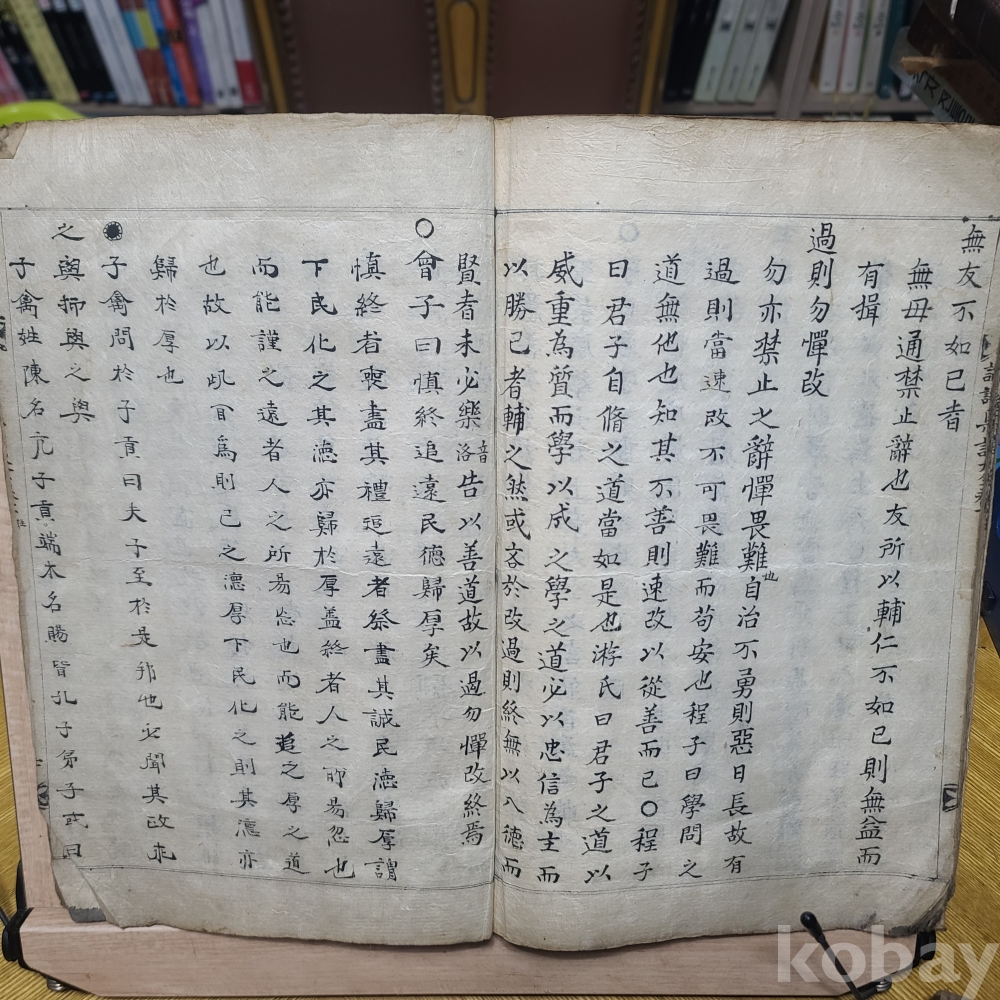 無友不如已者
無毋通禁止辭也友所以輔仁不如已則無益而
有損
過則勿憚改
勿亦禁止之辭憚畏難也自治不勇則惡日長故有
過則當速改不可畏難而苟安也程子曰學問之
道無他也知其不善則速改以從善而已○程子
曰君子自脩之道當如是也游氏曰君子之道以
威重為質而學以成之學之道必以忠信為主而
以勝己者輔之然或吝於改過則終無以入德而
賢者未必樂音洛告以善道故以過勿憚改終焉
○曾子曰慎終追遠民德歸厚矣
慎終者喪盡其禮追遠者祭盡其誠民德歸厚謂
下民化之其德亦歸於厚盖終者人之所易忽也
而能謹之遠者人之所易忘也而能追之厚之道
也故以此自爲則己之德厚下民化之則其德亦
歸於厚也
子禽問於子貢曰夫子至於是邦也必聞其政求
之與抑與之與
子禽姓陳名亢子貢端木名賜皆孔子弟子或曰
kobay